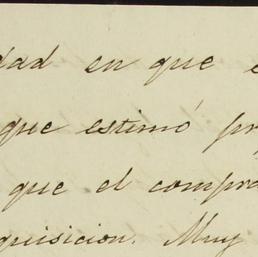 dad en que e
que estimó pr
que el compra
quisicion. Muy